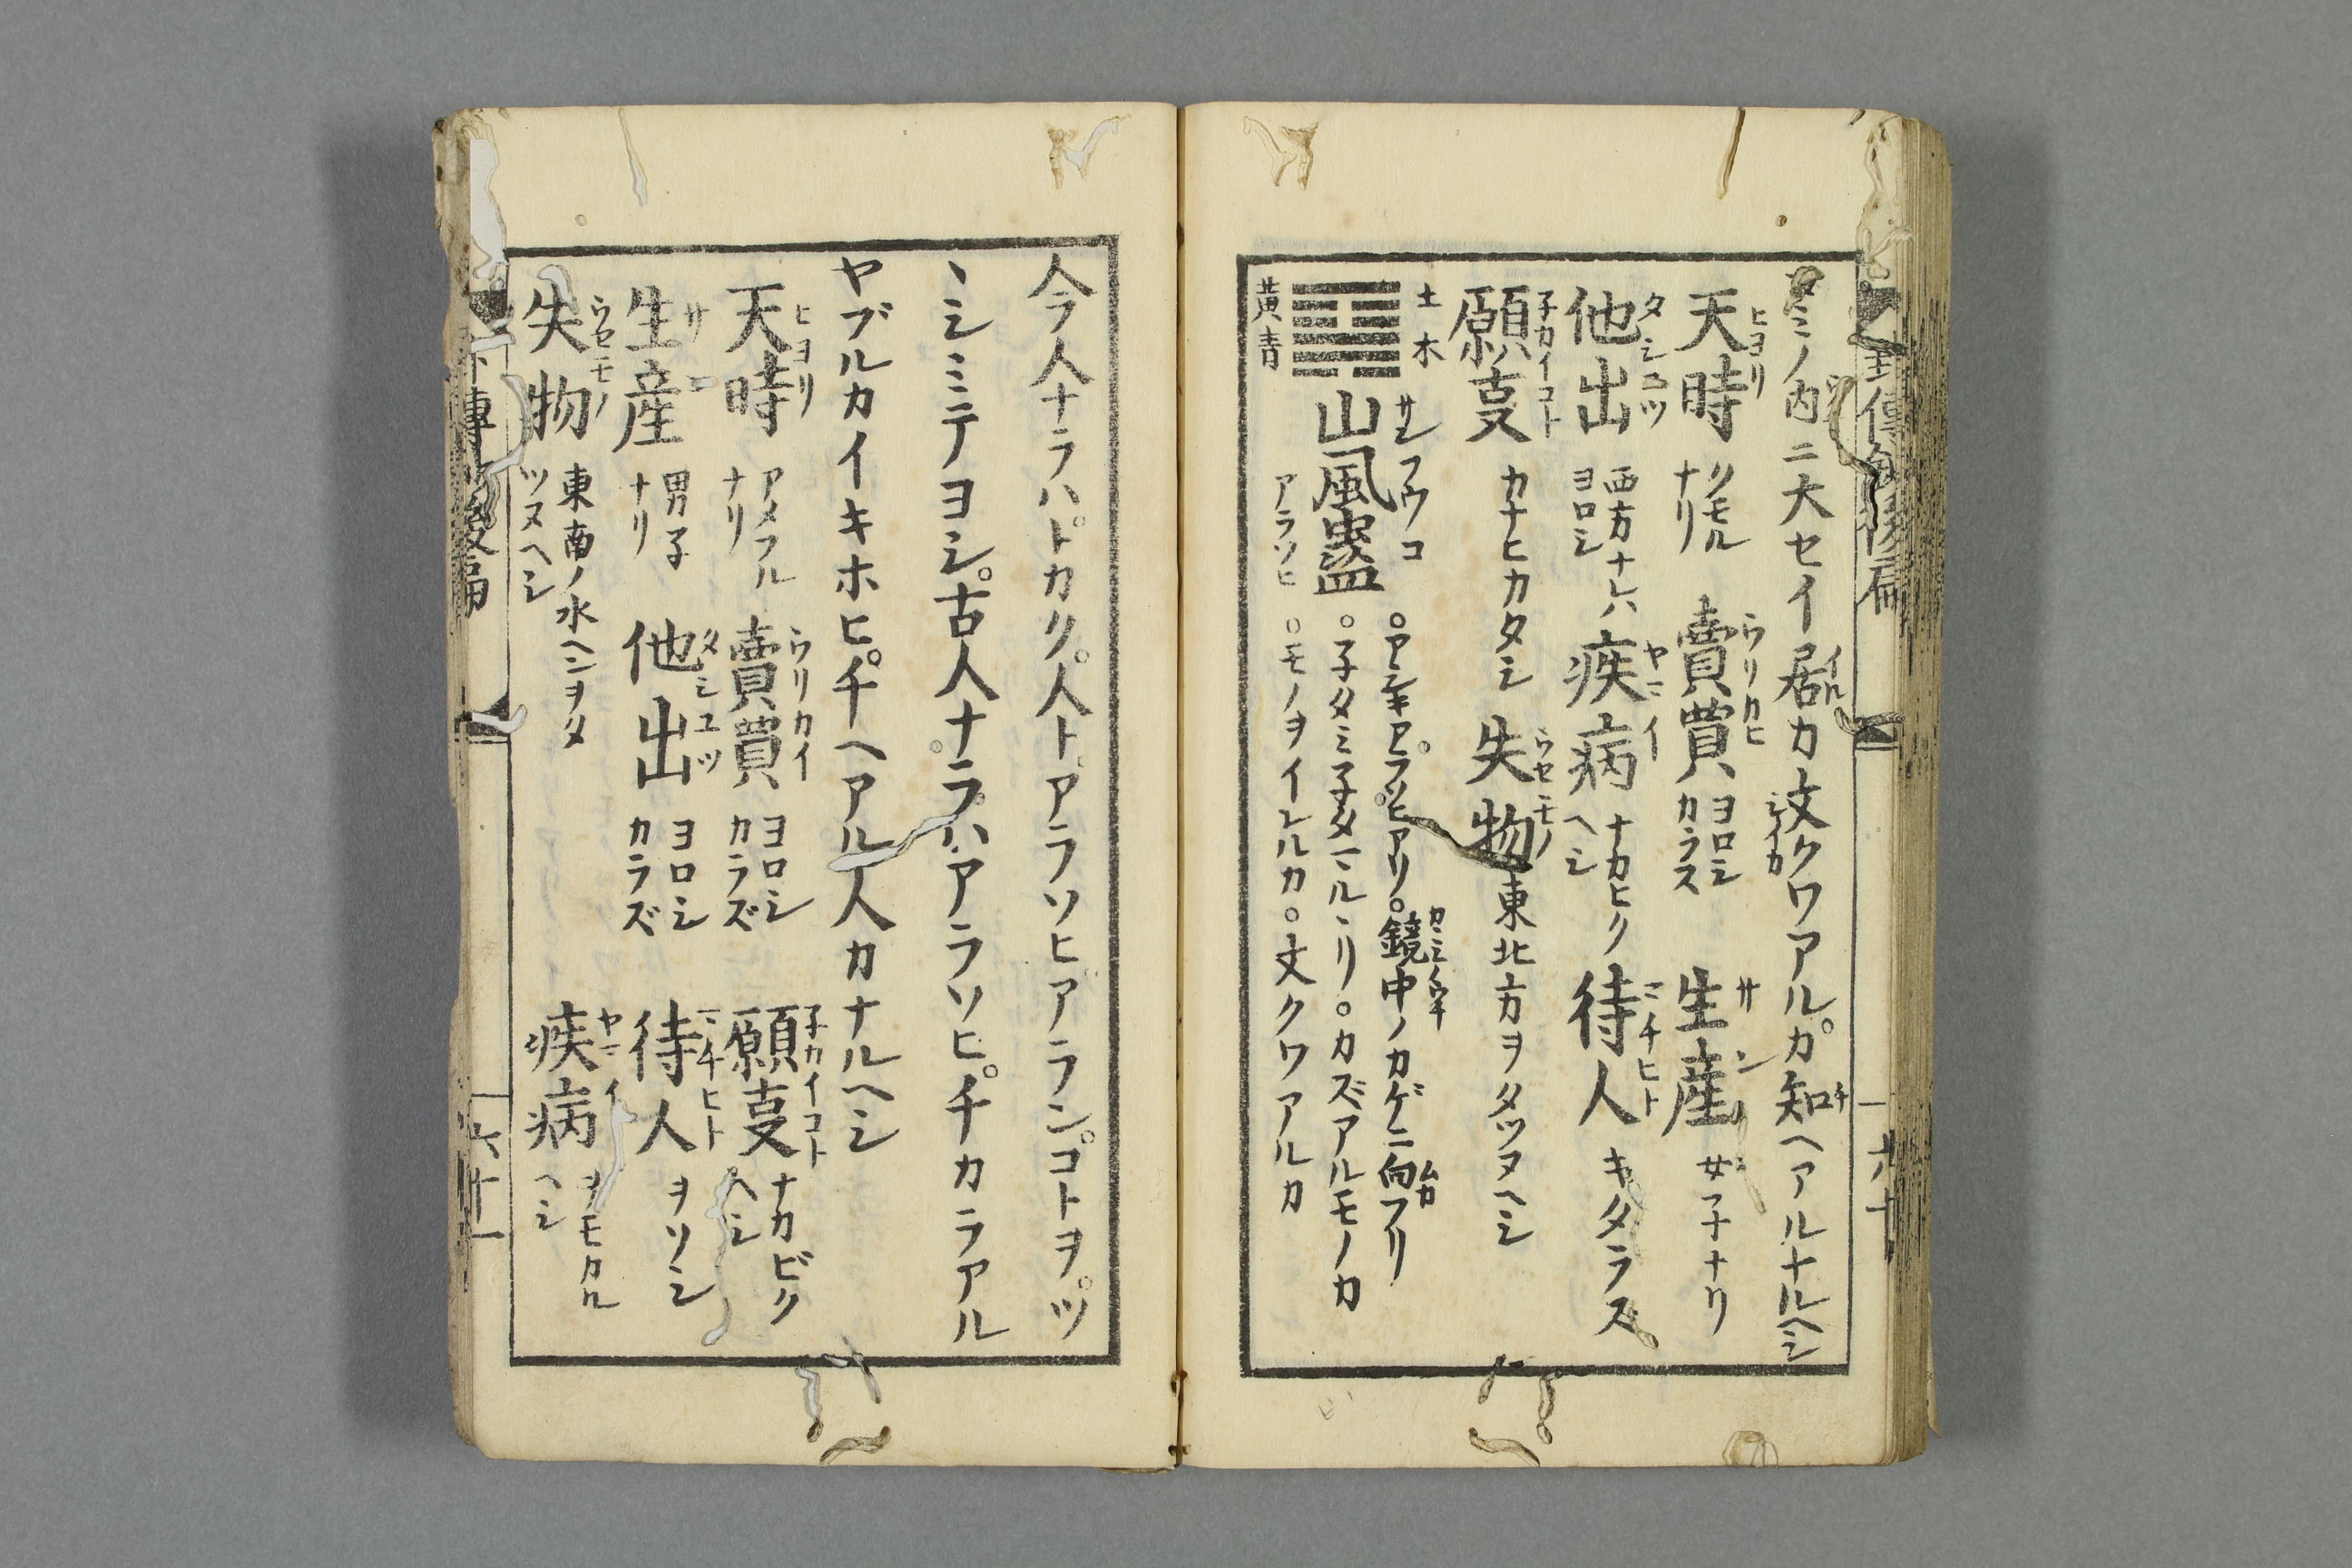 タミノ内ニ大セイ居カ文クワアルカ。知ヘアルナルヘシ
天時 クモル
ナリ
賣買 ヨロシ
カラス
生産 女子ナリ
他出 西方ナレハ
ヨロシ
疾病 ナカヒク
ヘシ
待人 キタラズ
願叓 カナヒカタシ
失物 東北ノ方ヲタツヌヘシ
土木
黄青
山風蠱
サンフウコ
アラソヒ
鏡中ノカゲニ向フリ
。カズアルモノカ
。モノヲイレルカ。文クワアルカ
今人ナラハ。トカク。人トアラソヒアランコトヲ。ツ
ヽシミミテヨシ。古人ナラハ。アラソヒ。チカラアル
ヤブルカイキホヒ。チヘアル人カナルヘシ
天時 アメフル
ナリ
賣買 ヨロシ
カラズ
願叓 ナカビク
ヘシ
生産 男子
ナリ
他出 ヨロシ
カラズ
待人 ヲソシ
失物 東南ノ水ヘンヲタ
ツヌヘシ
疾病 ヲモカル
ヘシ
六十一